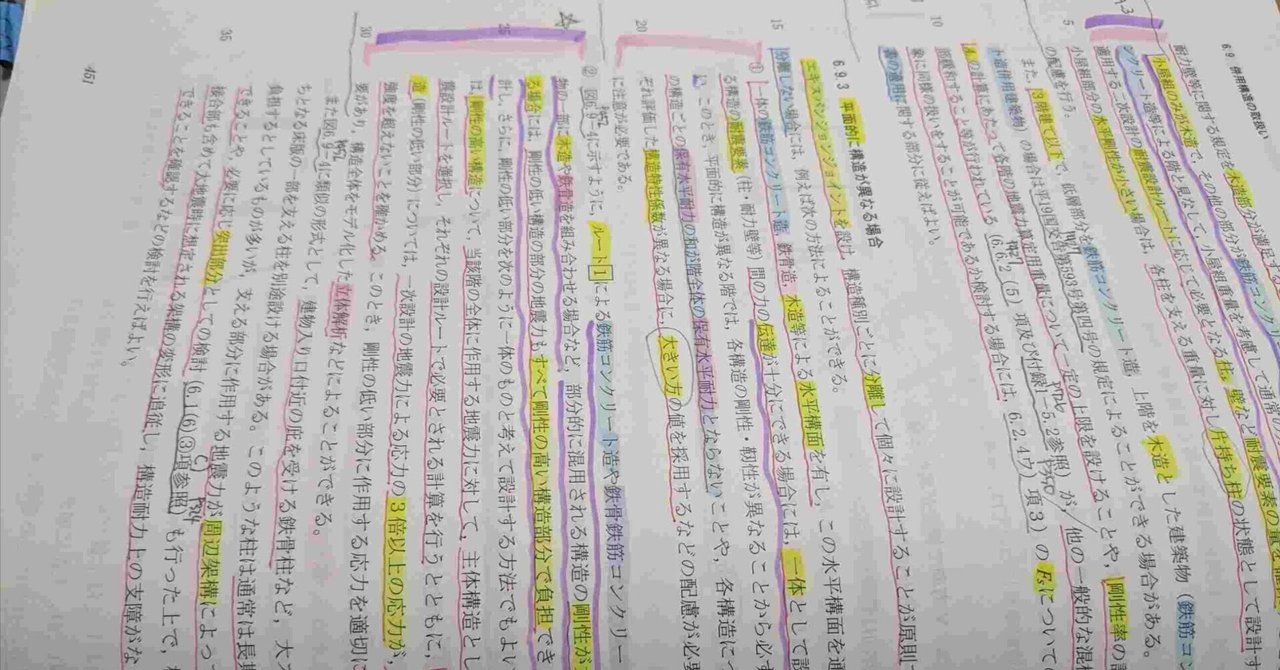 6.9 併用構造の取扱い
耐力壁等に関する規定を木造部分が満足す
小屋組のみが木造で、その他の部分が鉄筋コンク
ンクリート造等による階と見なして、小屋組重量を考慮して通常
適用する二次設計の耐震設計ルートに応じて必要となる柱、壁など耐震要素の量
小屋組部分の水平剛性が小さい場合は、各柱を支える重量に対し片持ち柱の状態として設計す
の配慮を行う。
また、3階建て以下で、低層部分を鉄筋コンクリート造、上階を木造とした建築物（鉄筋コ
ト造併用建築物）の場合は平19国交告第593号第四号の規定によることができる場合がある。
の計算にあたって各階の地震力算定用重量について一定の上限を設けることや、剛性率の
限緩和すること等が行われている（6.2.2(5)項及び付録1-5.2参照）が、他の一般的な混
象に同様の扱いをすることが可能であるか検討する場合には、6.2.4ウ)項3）のFsについて
書の適用に関する部分に従えばよい。
6.9.3 平面的に構造が異なる場合
エキスパンションジョイントを設け、構造種別ごとに分離して個々に設計することが原則
分離しない場合には、例えば次の方法によることができる。
① 一体の鉄筋コンクリート造、鉄骨造、木造等による水平構面を有し、この水平構面を通
る構造の耐震要素（柱・耐力壁等）間の力の伝達が十分にできる場合には、一体として設
い。このとき、平面的に構造が異なる階では、各構造の剛性・靭性が異なることから必ず
の構造ごとの保有水平耐力の和が階全体の保有水平耐力とならないことや、各構造につ
ぞれ評価した構造特性係数が異なる場合に大きい方の値を採用するなどの配慮が必要
に注意が必要である。
② 図6.9-4に示すように、ルート1による鉄筋コンクリート造や鉄骨鉄筋コンクリー
物の一部に木造や鉄骨造を組み合わせる場合など、部分的に混用される構造の剛性が
る場合には、剛性の低い構造の部分の地震力もすべて剛性の高い構造部分で負担でき
計し、さらに、剛性の低い部分を次のように一体のものと考えて設計する方法でもよい
は、剛性の高い構造について、当該階の全体に作用する地震力に対して、主体構造とし
震設計ルートを選択し、それぞれの設計ルートで必要とされる計算を行うとともに、
造（剛性の低い部分）については、一次設計の地震力による応力の3倍以上の応力が、
強度を超えないことを確かめる。このとき、剛性の低い部分に作用する応力を適切に
要があり、構造全体をモデル化した立体解析などによることができる。
また図6.9-4に類似の形式として、建物入り口付近の庇を受ける鉄骨柱など、大
ちとなる床版の一部を支える柱を別途設ける場合がある。このような柱は通常は長期
負担するとしているものが多いが、支える部分に作用する地震力が周辺架構によっ
できることや、必要に応じ突出部分としての検討（6.1(6)③項参照）も行った上で、
接合部も含めて大地震時に想定される架構の変形に追従し、構造耐力上の支障がな
できることを確認するなどの検討を行えばよい。
5
10
15
20
25
30
35
451